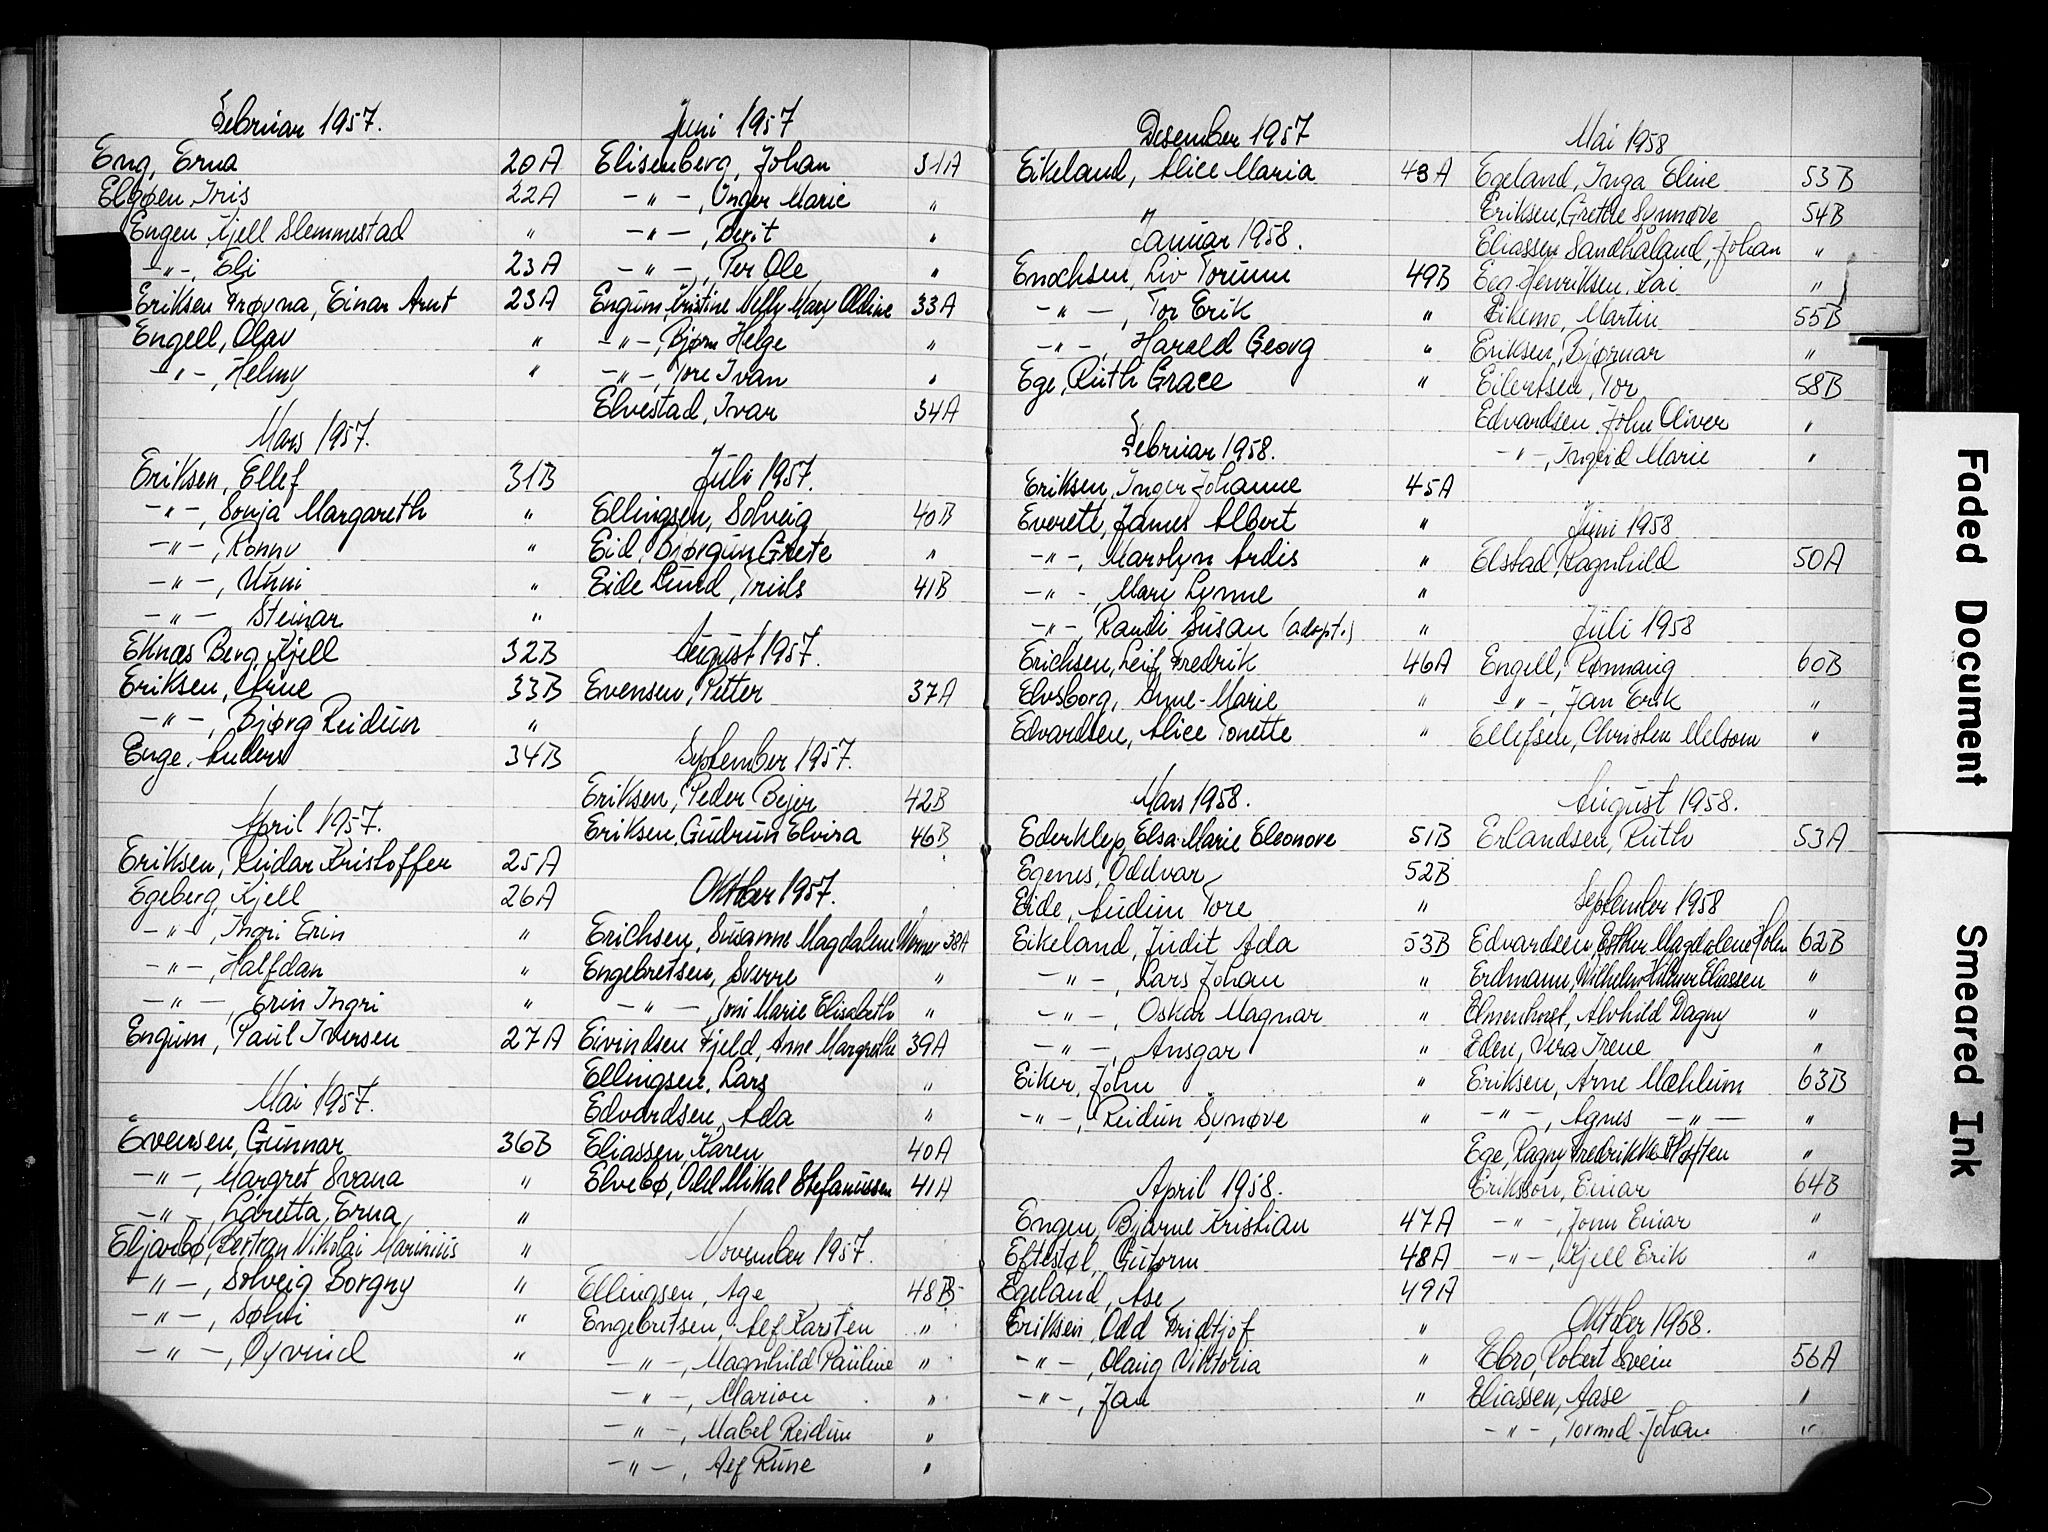 Februar 1957.
Eng, Erna 20A
Elgøen, Iris 22A
Engen, Kjell Slemmestad "
-"-, Eli 23A
Eriksen Frøyna, Einar Arnt 23A
Engell, Olav "
-"-, Helmy "
Mars 1957.
Eriksen, Ellef 31B
-"-, Sonja Margareth "
-"-, Ronny "
-"-, Unni "
-"-, Steinar "
Eknæs Berg, Kjell 32B
Eriksen, Arne 33B
-"-, Bjørg Reidun "
Enge, Anders 34B
April 1957.
Eriksen, Reidar Kristoffer 25A
Egeberg, Kjell 26A
-"-, Ingri Erin "
-"-, Halfdan "
-"-, Erin Ingri "
Engum, Paul Iversen 27A
Mai 1957.
Evensen, Gunnar 36B
-"-, Margret Svana "
-"-, Laretta Erna "
Eljarbø, Bertran Nikolai Marinius "
-"-, Solveig Borgny "
-"-, Sølvi "
-"-, Øyvind "
Juni 1957
Elisenberg, Johan 31A
-"-, Inger Marie "
-"-, Berit "
-"-, Per Ole "
Engum, Kristine Nelly Mary Oldine 33A
-"-, Bjørn Helge "
-"-, Tore Ivan "
Elvestad, Ivar 34A
Juli 1957.
Ellingsen, Solveig 40B
Eid, Bjørgun Grete "
Eide Lund, Truls 41B
August 1957.
Evensen, Petter 37A
September 1957.
Eriksen, Peder Bejer 42B
Eriksen, Gudrun Elvira 46B
Oktber 1957.
Erichsen, Susanne Magdalene Werner 38A
Engebretsen, Sverre "
-"-, Toni Marie Elisabeth "
Eivindsen Fjeld, Anne Margrethe 39A
Ellingsen, Lars "
Edvardsen, Ada "
Eliassen, Karen 40A
Elvebø, Odd Mikal Stefanussen 41A
November 1957.
Ellingsen, Age 48B
Engebretsen, Alf Karsten "
-"-, Magnhild Pauline "
-"-, Marion "
-"-, Mabel Reidun "
-"-, Alf Rune "
Desember 1957
Eikeland, Alice Maria 43A
"
Januar 1958.
Enochsen, Liv Torunn 49B
-"-, Tor Erik "
-"-, Harald Georg "
Ege, Ruth Grace "
Februar 1958.
Eriksen, Inger Johanne 45A
Everett, James Albert "
-"-, Marolyn Ardis "
-"-, Mari Lynne "
-"-, Randi Susan (adopt.) "
Erichsen, Leif Fredrik 46A
Elvsborg, Anne-Marie "
Edvardsen, Alice Tonette "
Mars 1958.
Ederklep, Elsa Marie Eleonore 51B
Egenes, Oddvar 52B
Eide, Audun Tore "
Eikeland, Judit Ada 53B
-"-, Lars Johan "
-"-, Oskar Magnar "
-"-, Ansgar "
Eiker, John "
-"-, Reidun Synøve "
April 1958.
Engen, Bjarne Kristian 47A
Eftestøl, Gutorm 48A
Egeland, Ase 49A
Eriksen, Odd Fridtjof "
-"-, Olaug Viktoria "
-"-, Jan "
Mai 1958
Egeland, Inga Eline 53B
Eriksen, Grethe Synnøve 54B
Eliassen Sandhåland, Johan "
Eeg-Henriksen, Kai "
Eikemo, Martin 55B
Eriksen, Bjørnar "
Eilertsen, Tor 58B
Edvardsen, John Oliver "
-"-, Ingrid Marie "
Juni 1958
Elstad, Ragnhild 50A
Juli 1958
Engell, Rønnaug 60B
-"-, Jan Erik "
Ellefsen, Christen Melsom "
August 1958.
Erlandsen, Ruth 53A
September 1958
Edvardsen, Esther Magdalene Holm 62B
Erdmann, Wilhelm Eliassen "
Elmenhorst, Alvhild Dagny "
Eden, Vera Irene "
Eriksen, Arne Mæhlum 63B
-"-, Agnes -"- "
Ege, Ragny Fredrikke "
Eriksson, Einar 64B
-"-, Jonn Einar "
-"-, Kjell Erik "
Oktber 1958.
Ebro, Robert Svein 56A
Eliassen, Aase "
-"-, Tormod Johan "
Faded Document
Smeared Ink